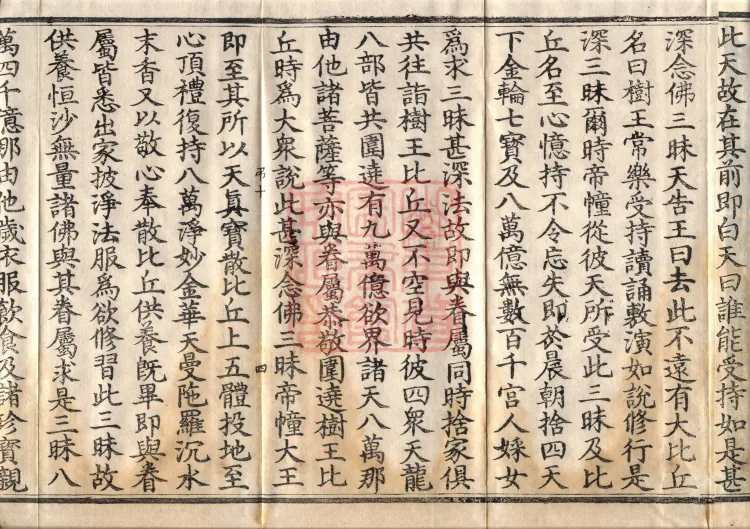 此天故在其前即白天曰誰能受持如是甚
深念佛三昧天告王曰去此不遠有大比丘
名曰樹王常樂受持讀誦敷演如說修行是
深三昧爾時帝幢從彼天所受此三昧及比
丘名至心憶持不令忘失即於晨朝捨四天
下金輪七寶及八萬億無數百千宮人婇女
為求三昧甚深法故即與眷屬同時捨家俱
共往詣樹王比丘又不空見時彼四眾天龍
八部皆共圍遶有九萬億欲界諸天八萬那
由他諸菩薩等亦與眷屬恭敬圍遶樹王比
丘時為大眾說此甚深念佛三昧帝幢大王
四
即至其所以天真寶散比丘上五體投地至
心頂禮復持八萬淨妙金華天曼陁羅沉水
末香又以敬心奉散比丘供養既畢即與眷
屬皆悉出家披淨法服為欲修習此三昧故
供養恒沙無量諸佛與其眷屬求是三昧八
萬四千億那由他歲衣服飲食及諸珍寶親